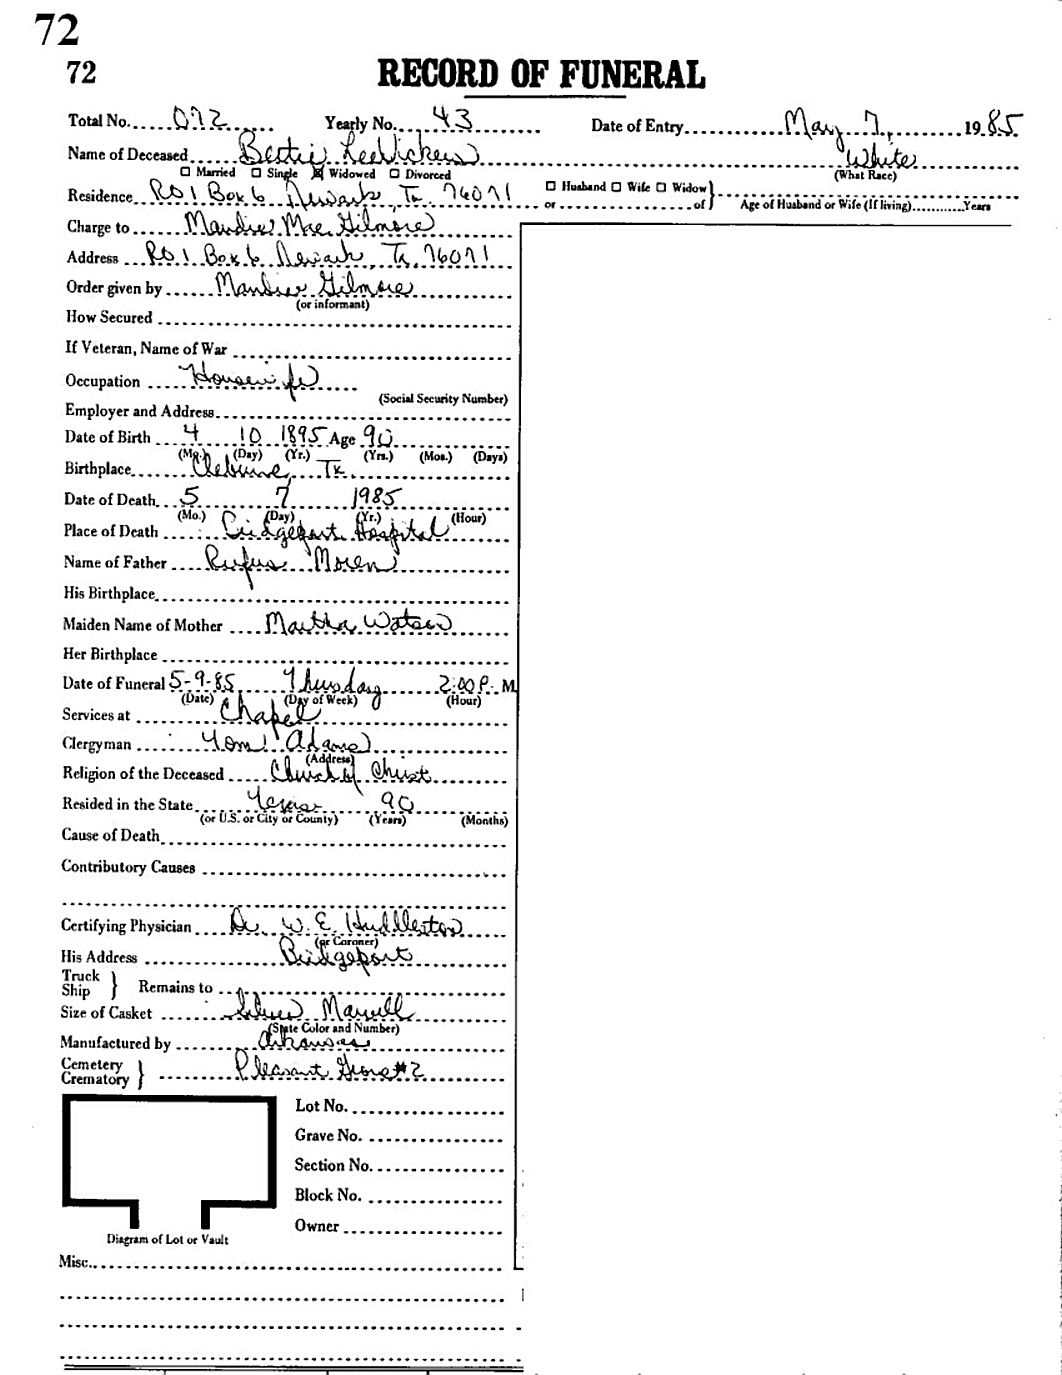 72
72 RECORD OF FUNERAL
Total No. 072 Yearly No. 43 Date of Entry May 7, 1985
Name of Deceased Bertie Lee Vickers White
☐ Married ☐ Single ☒ Widowed ☐ Divorced (What Race)
Residence RD 1 Box 6 Newark, Tx. 76071 ☐ Husband ☐ Wife ☐ Widow}
or of} Age of Husband or Wife (If living) Years
Charge to Mandie Mae Gilmore
Address RD.1 Box 6 Newark, Tx. 76071
Order given by Mandie Gilmore
(or informant)
How Secured
If Veteran, Name of War
Occupation Housewife
(Social Security Number)
Employer and Address
Date of Birth 4 10 1895 Age 90
(Mo.) (Day) (Yr.) (Yrs.) (Mos.) (Days)
Birthplace Cleburne, Tx.
Date of Death 5 7 1985
(Mo.) (Day) (Yr.) (Hour)
Place of Death Bridgeport Hospital
Name of Father Rufus Moren
His Birthplace
Maiden Name of Mother Martha Watson
Her Birthplace
Date of Funeral 5-9-85 Thursday 2:00 P. M
(Date) (Day of Week) (Hour)
Services at Chapel
Clergyman Tom Adams
(Address)
Religion of the Deceased Church of Christ
Resided in the State Texas 90
(or U.S. or City or County) (Years) (Months)
Cause of Death
Contributory Causes
Certifying Physician Dr. W. E. Huddleston
(or Coroner)
His Address Bridgeport
Truck
Ship } Remains to
Size of Casket Silver
(State Color and Number)
Manufactured by Arkansas
Cemetery
Crematory } Pleasant Grove #2
Lot No.
Grave No.
Section No.
Block No.
Owner
Diagram of Lot or Vault
Misc.